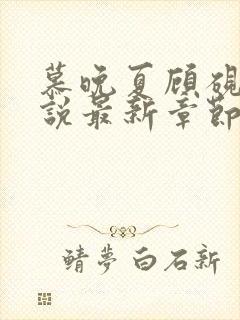 慕晚夏顾砚
說最新章節
鯖夢白石新